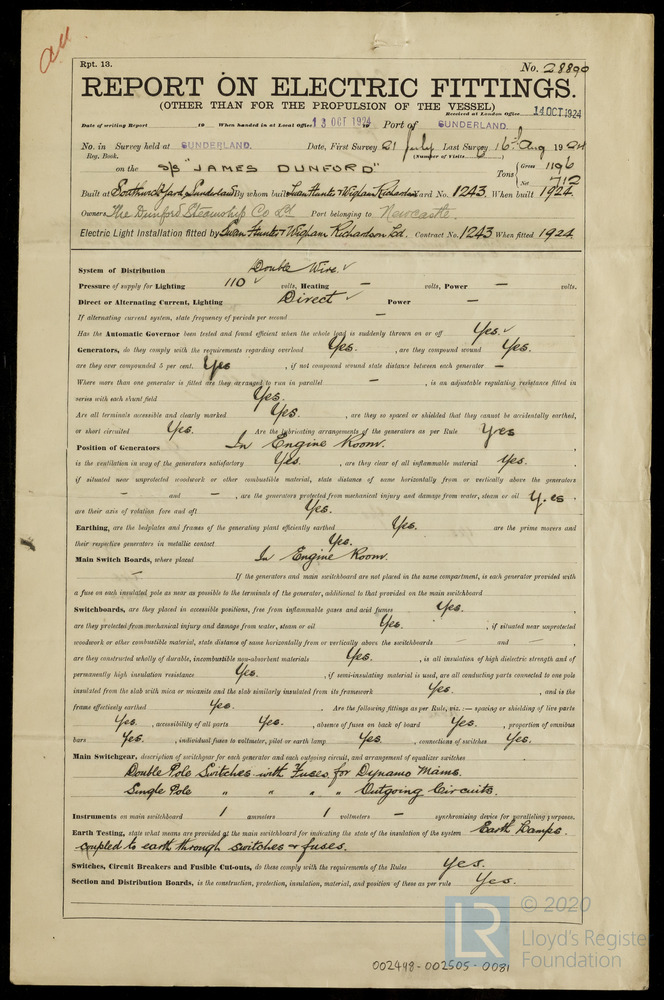 Rpt. 13.
No. 28890
REPORT ON ELECTRIC FITTINGS.
(OTHER THAN FOR THE PROPULSION OF THE VESSEL)
Received at London Office 14 OCT 1924
Date of writing Report 19 When handed in at Local Office 13 OCT 1924 Port of SUNDERLAND.
No. in Survey held at SUNDERLAND. Date, First Survey 21 July Last Survey 16th Aug 1924
Reg. Book. (Number of Visits
on the S/S "JAMES DUNFORD" Tons { Gross 1196
Net 712
Built at Southwick Yard, Sunderland By whom built Swan Hunter & Wigham Richardson Yard No. 1243. When built 1924.
Owners The Dunford Steamship Co Ld Port belonging to Newcastle.
Electric Light Installation fitted by Swan Hunter & Wigham Richardson Ld. Contract No. 1243 When fitted 1924
System of Distribution Double Wire. ✓
Pressure of supply for Lighting 110 ✓ volts, Heating — volts, Power — volts.
Direct or Alternating Current, Lighting Direct ✓ Power —
If alternating current system, state frequency of periods per second
Has the Automatic Governor been tested and found efficient when the whole load is suddenly thrown on or off Yes. ✓
Generators, do they comply with the requirements regarding overload Yes. , are they compound wound Yes.
are they over compounded 5 per cent. Yes , if not compound wound state distance between each generator —
Where more than one generator is fitted are they arranged to run in parallel — , is an adjustable regulating resistance fitted in
series with each shunt field Yes.
Are all terminals accessible and clearly marked Yes. , are they so spaced or shielded that they cannot be accidentally earthed,
or short circuited Yes. Are the lubricating arrangements of the generators as per Rule Yes
Position of Generators In Engine Room.
is the ventilation in way of the generators satisfactory Yes. , are they clear of all inflammable material Yes.
if situated near unprotected woodwork or other combustible material, state distance of same horizontally from or vertically above the generators
— and — , are the generators protected from mechanical injury and damage from water, steam or oil Yes
are their axis of rotation fore and aft Yes.
Earthing, are the bedplates and frames of the generating plant efficiently earthed Yes. are the prime movers and
their respective generators in metallic contact Yes.
Main Switch Boards, where placed In Engine Room.
— If the generators and main switchboard are not placed in the same compartment, is each generator provided with
a fuse on each insulated pole as near as possible to the terminals of the generator, additional to that provided on the main switchboard
Switchboards, are they placed in accessible positions, free from inflammable gases and acid fumes Yes.
are they protected from mechanical injury and damage from water, steam or oil Yes. , if situated near unprotected
woodwork or other combustible material, state distance of same horizontally from or vertically above the switchboards — and — ,
are they constructed wholly of durable, incombustible non-absorbent materials Yes. , is all insulation of high dielectric strength and of
permanently high insulation resistance Yes. , if semi-insulating material is used, are all conducting parts connected to one pole
insulated from the slab with mica or micanite and the slab similarly insulated from its framework Yes. , and is the
frame effectively earthed Yes. . Are the following fittings as per Rule, viz. :— spacing or shielding of live parts
Yes. , accessibility of all parts Yes. , absence of fuses on back of board Yes. , proportion of omnibus
bars Yes. , individual fuses to voltmeter, pilot or earth lamp Yes. , connections of switches Yes.
Main Switchgear, description of switchgear for each generator and each outgoing circuit, and arrangement of equalizer switches
Double Pole Switches with Fuses for Dynamo Mains.
Single Pole " " " " Outgoing Circuits.
Instruments on main switchboard 1 ammeters 1 voltmeters — synchronising device for paralleling purposes.
Earth Testing, state what means are provided at the main switchboard for indicating the state of the insulation of the system Earth Lamps.
coupled to earth through switches & fuses.
Switches, Circuit Breakers and Fusible Cut-outs, do these comply with the requirements of the Rules Yes.
Section and Distribution Boards, is the construction, protection, insulation, material, and position of these as per rule Yes.
© 2020
LR
Lloyd's Register
Foundation
002498-002505-0081